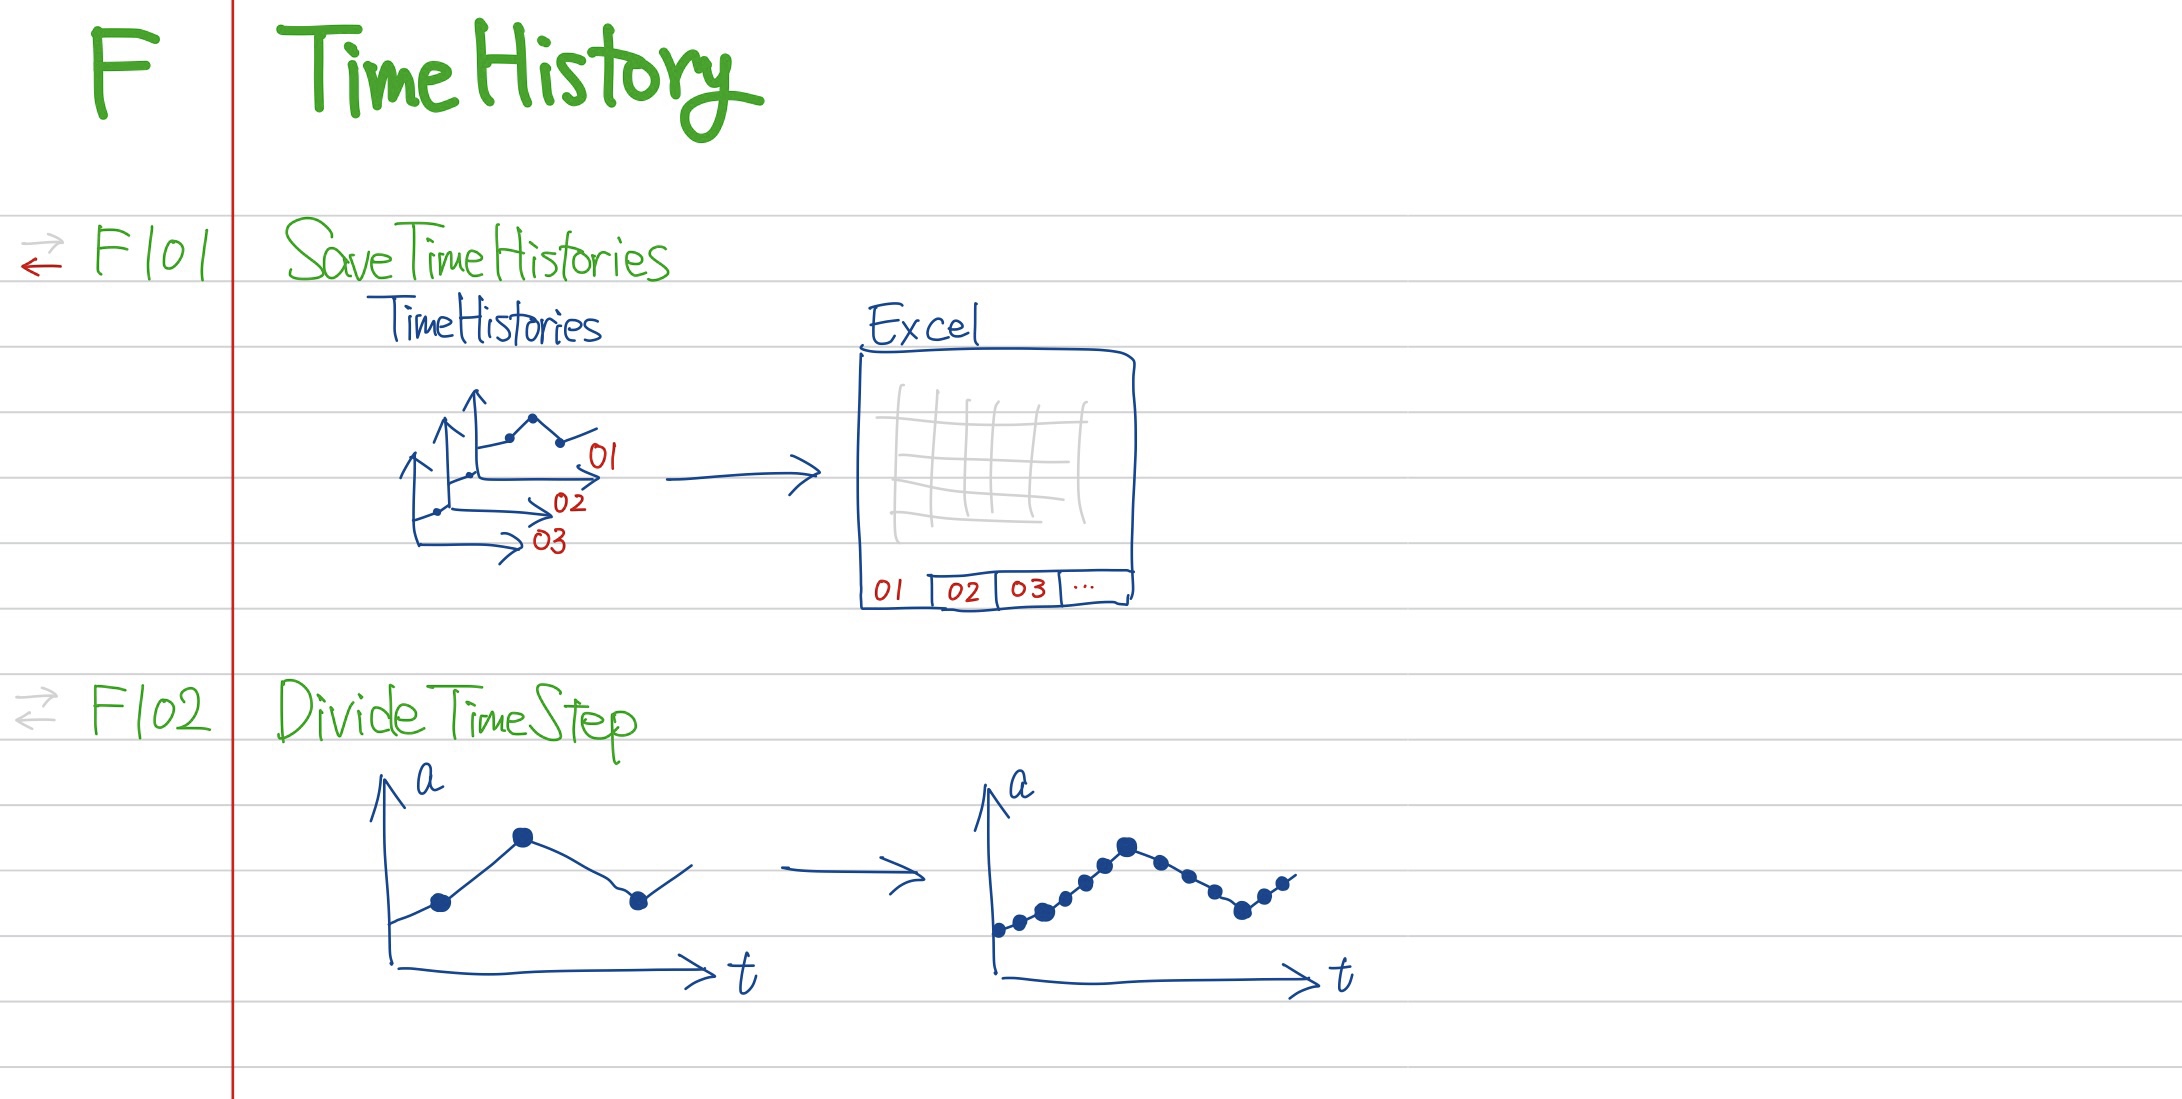 F TimeHistory
F101 SaveTimeHistories
TimeHistories Excel
01
02
03
01 02 03 ...
F102 DivideTimeStep
a a
t t